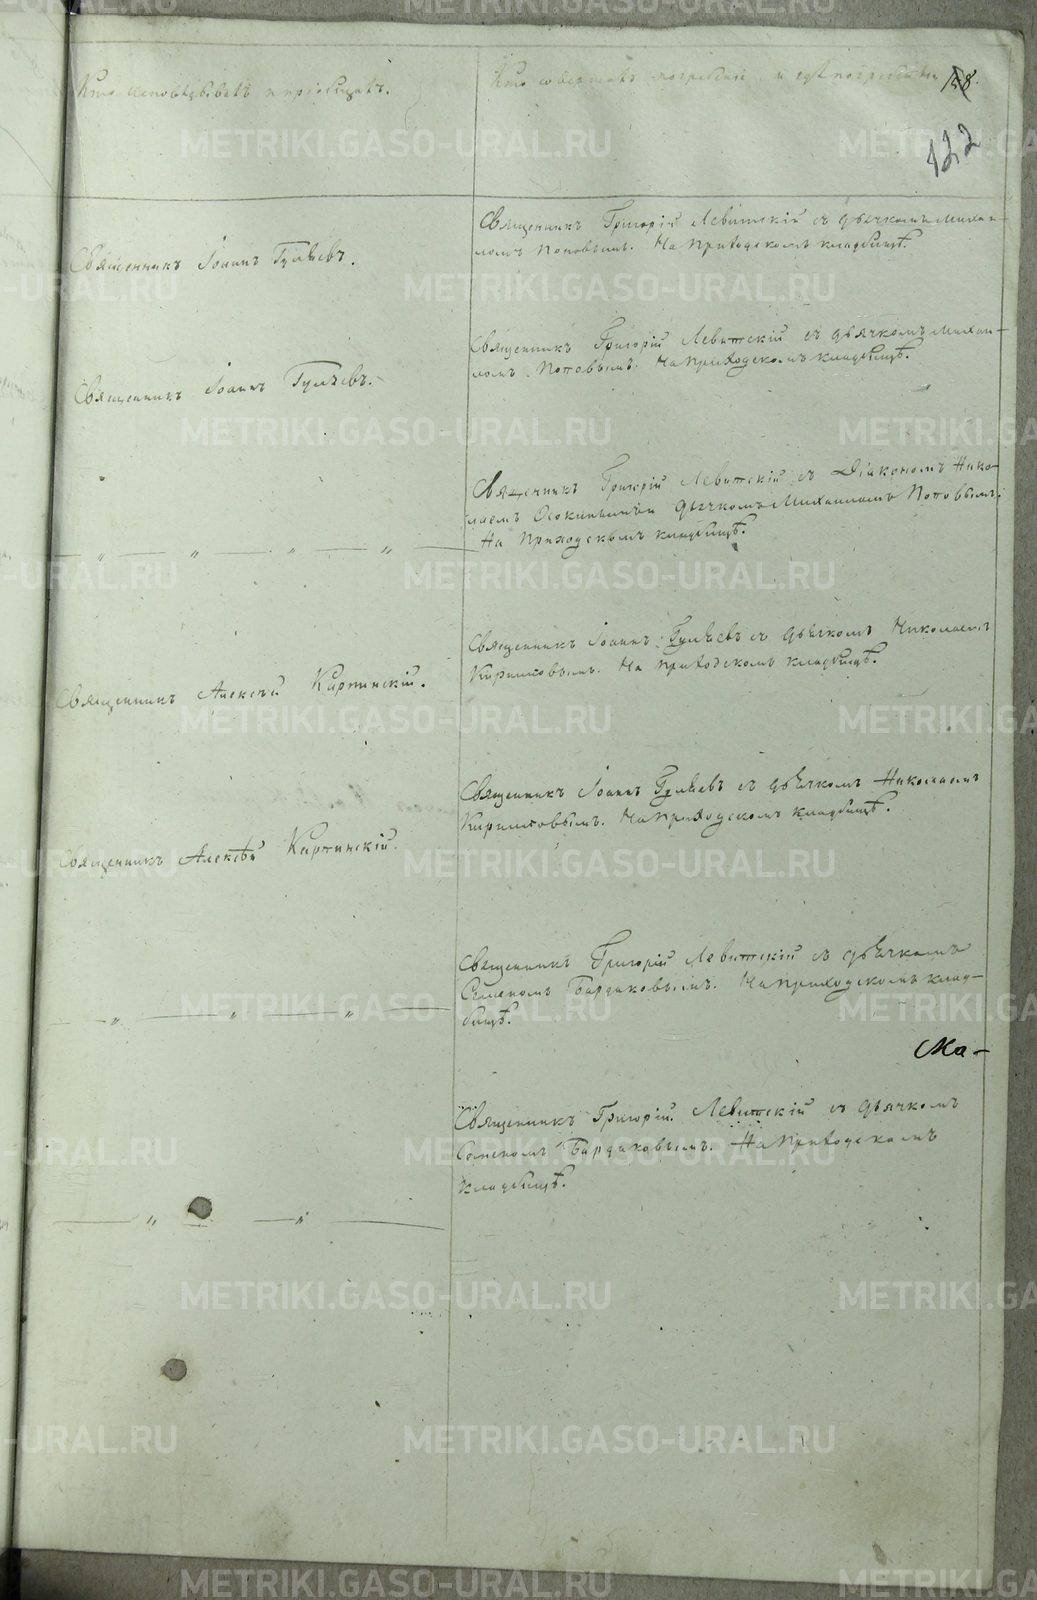 Кто исповѣдывалъ и пріобщалъ.
Кто совершалъ погребеніе и гдѣ погребены
158.
122
Священникъ Іоаннъ Гуляевъ.
Священникъ Григорій Левитскій съ дьячкомъ Михаи-
ломъ Поповымъ. На приходскомъ кладбищѣ.
Священникъ Іоаннъ Гуляевъ.
Священникъ Григорій Левитскій съ дьячкомъ Михаи-
ломъ Поповымъ. На приходскомъ кладбищѣ.
Священникъ Григорій Левитскій съ Діакономъ Нико-
лаемъ и дьячкомъ Михаиломъ Поповымъ.
На приходскомъ кладбищѣ.
— „ — „ — „ — „ —
Священникъ Алексѣй Карпинскій.
Священникъ Іоаннъ Гуляевъ съ дьячкомъ Николаемъ
Кирилловымъ. На приходскомъ кладбищѣ.
Священникъ Алексѣй Карпинскій.
Священникъ Іоаннъ Гуляевъ съ дьячкомъ Николаемъ
Кирилловымъ. На приходскомъ кладбищѣ.
— „ — „ — „ —
Священникъ Григорій Левитскій съ дьячкомъ
Семеномъ Бардаковымъ. На приходскомъ клад-
бищѣ.
Ма-
— „ — „ —
Священникъ Григорій Левитскій съ дьячкомъ
Семеномъ Бардаковымъ. На приходскомъ
кладбищѣ.
METRIKI.GASO-URAL.RU